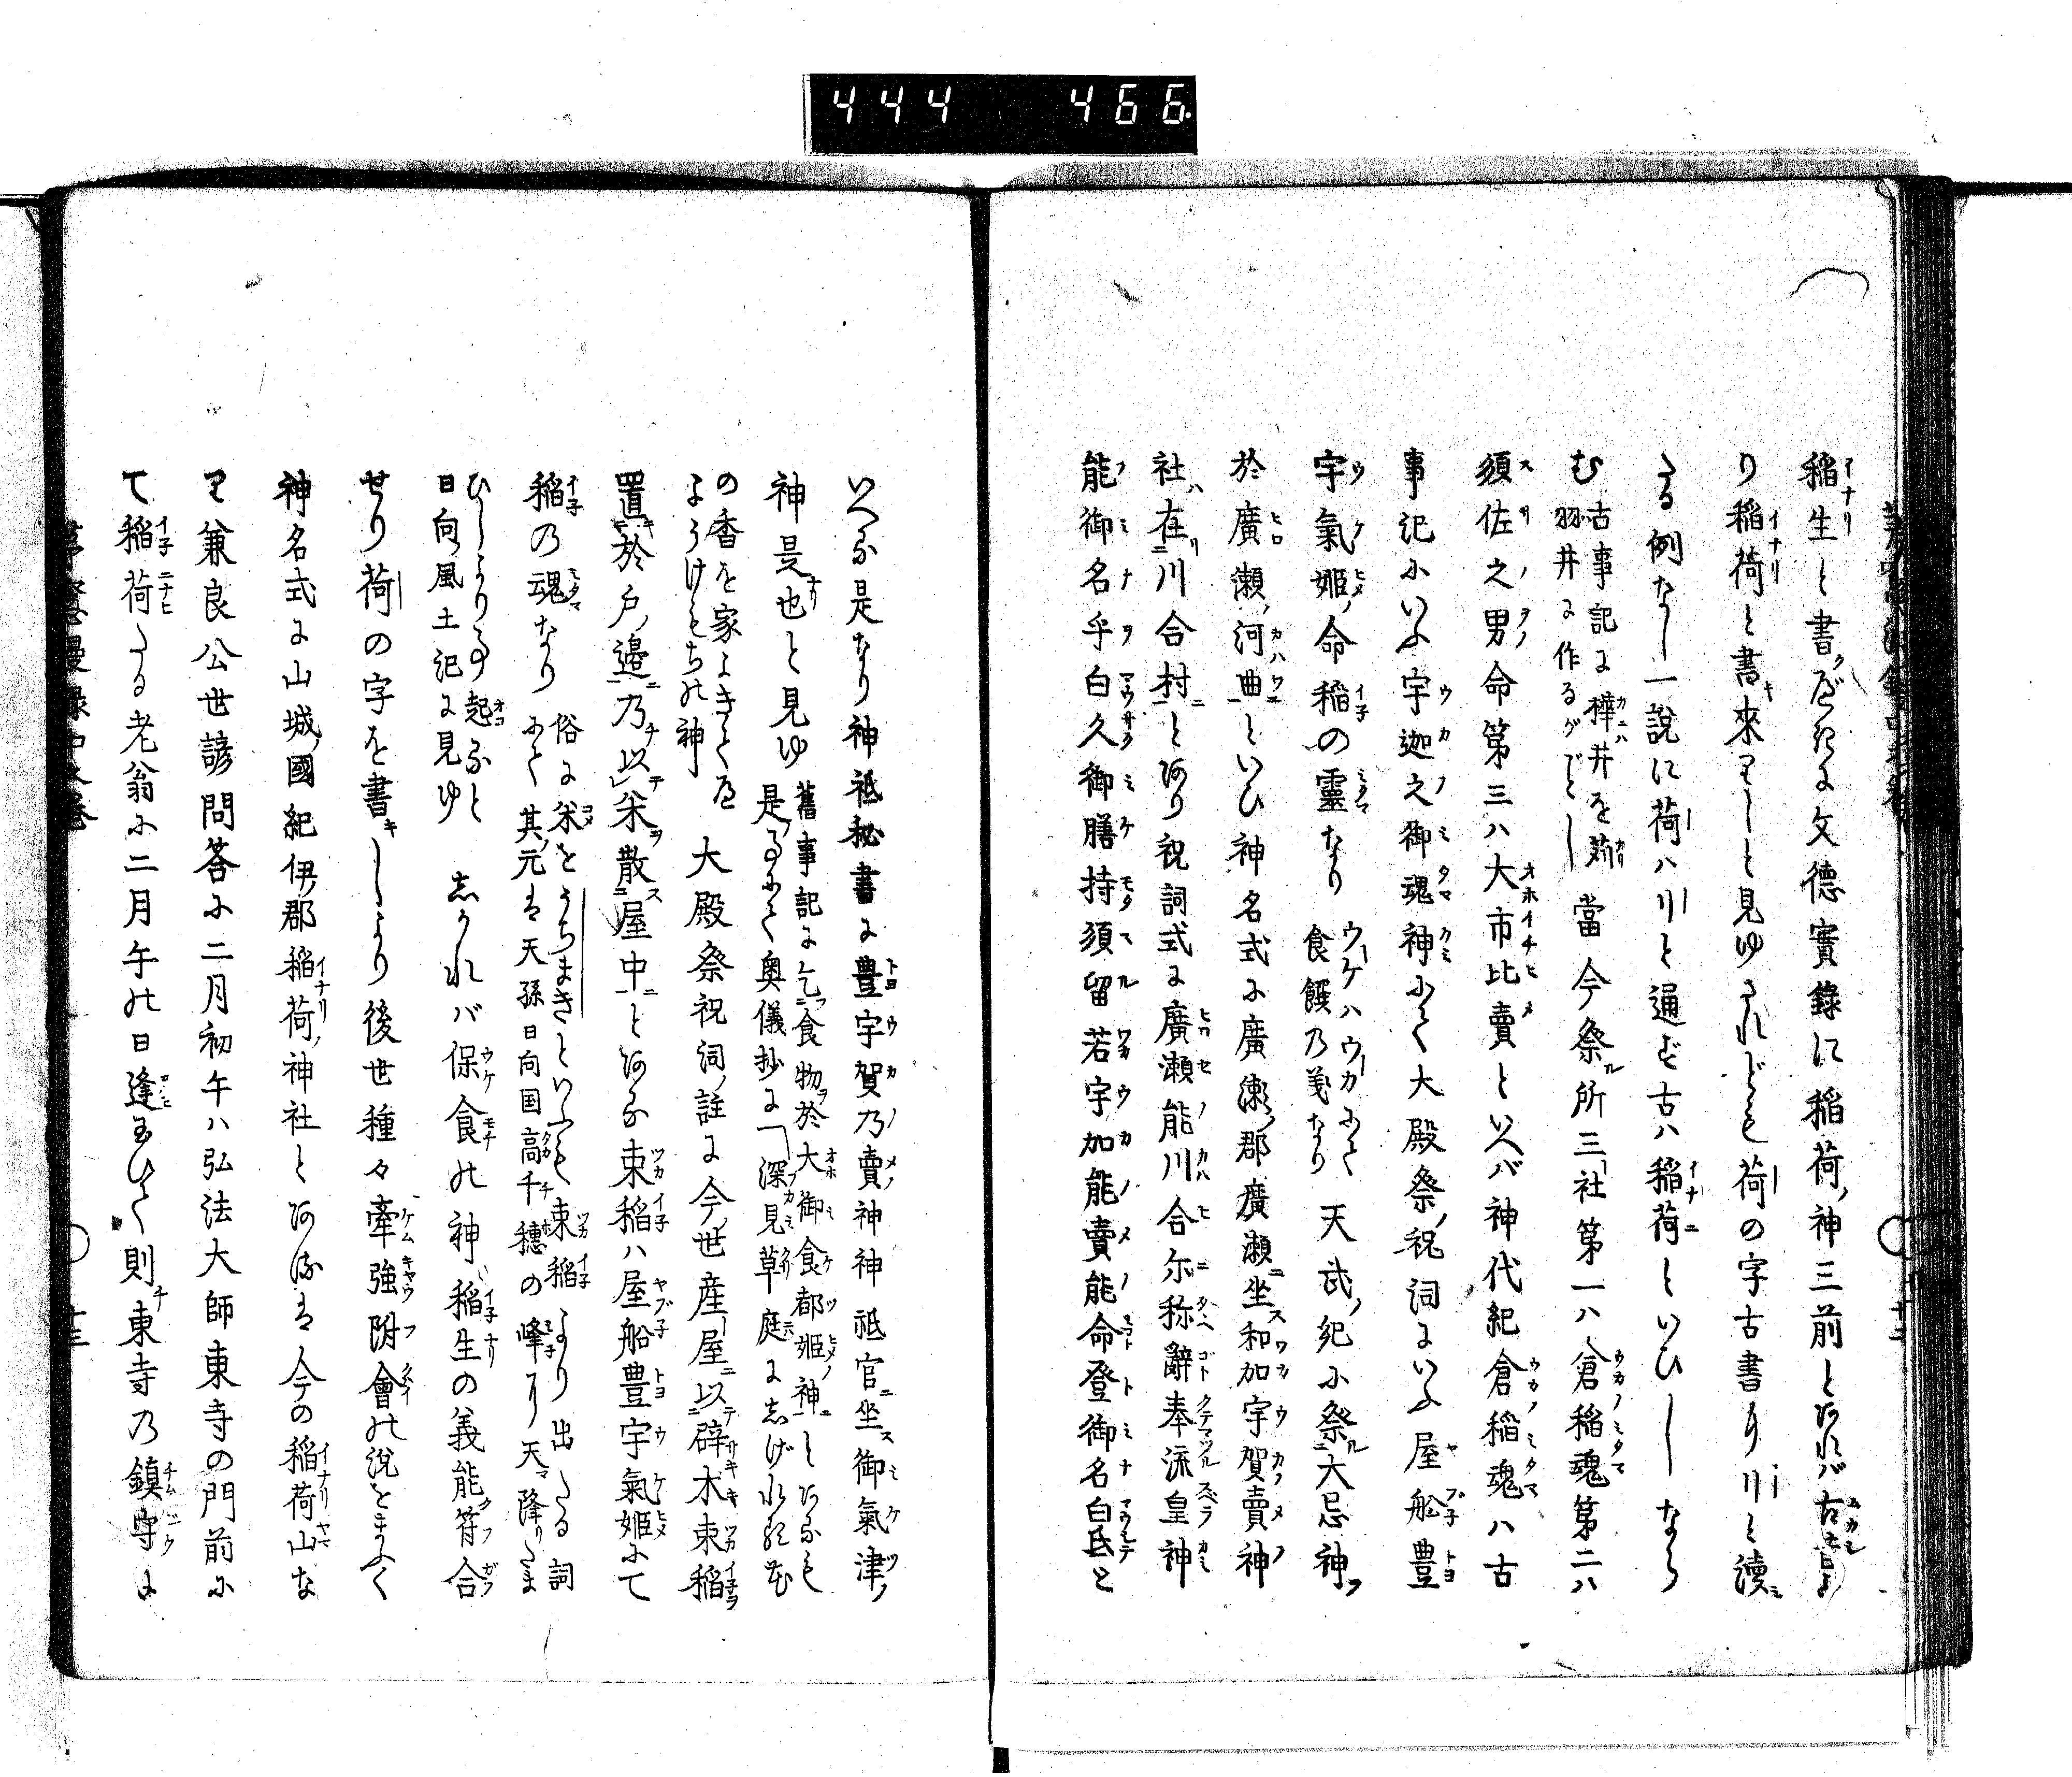 444 466
稲生と書べきに文徳實録に稲荷ノ神三前とあれバ古昔よ
り稲荷と書來りしと見ゆされども荷の字古書にリと讀
たる例なし一說に荷ハ川と通ず古ハ稲荷といひしなら
む古事記に樺井を苅羽井に作るがごとし當今祭ル所三社第一ハ倉稲魂第二ハ
須佐之男命第三ハ大市比賣といへバ神代紀倉稲魂ハ古
事記にいふ宇迦之御魂神にて大殿祭ノ祝詞にいふ屋舩豊
宇氣姬ノ命稲の靈なりウケハウカにて食饌乃義なり天武ノ紀に祭ル大忌神
於廣瀬ノ河曲といひ神名式に廣瀬ノ郡廣瀬坐和加宇賀賣神
社在川合村とあり祝詞式に廣瀬能川合尓称辭奉流皇神
能御名乎白久御膳持須留若宇加能賣能命登御名白氐と
いへる是なり神祗秘書に豊宇賀乃賣神神祗官坐御氣津ノ
神是也と見ゆ舊事記に乞食物於大御食都姬ノ神とあるも是ノ事にて奥儀抄に深見草庭にしげれる花
の香を家よきとくるようけもちの神大殿祭祝詞ノ註に今世產屋以辟木束稲
置於戸ノ邉乃以米散屋中とある束稲ハ屋船豊宇氣姬にて
稲乃魂なり俗に米をうちまきといふも束稲より出たる詞にて其元は天孫日向国高千穂の峰に天降りたま
ひしよりの事起ると日向ノ風土記に見ゆしかれバ保食の神ハ稲生の義能符合
せり荷の字を書しより後世種々牽強附會の說をまふく
神名式に山城ノ國紀伊ノ郡稲荷ノ神社とあるは今の稲荷山な
り兼良公世諺問答に二月初午ハ弘法大師東寺の門前に
て稲荷たる老翁に二月午の日逢玉ひて則東寺乃鎮守に